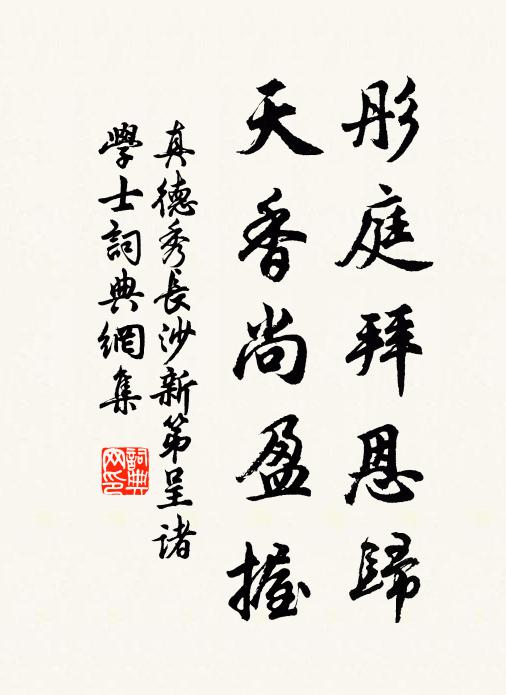 彤庭拜恩歸
天香尚盈握
真德秀長沙新第呈諸
學士詞典網集
詞典網印